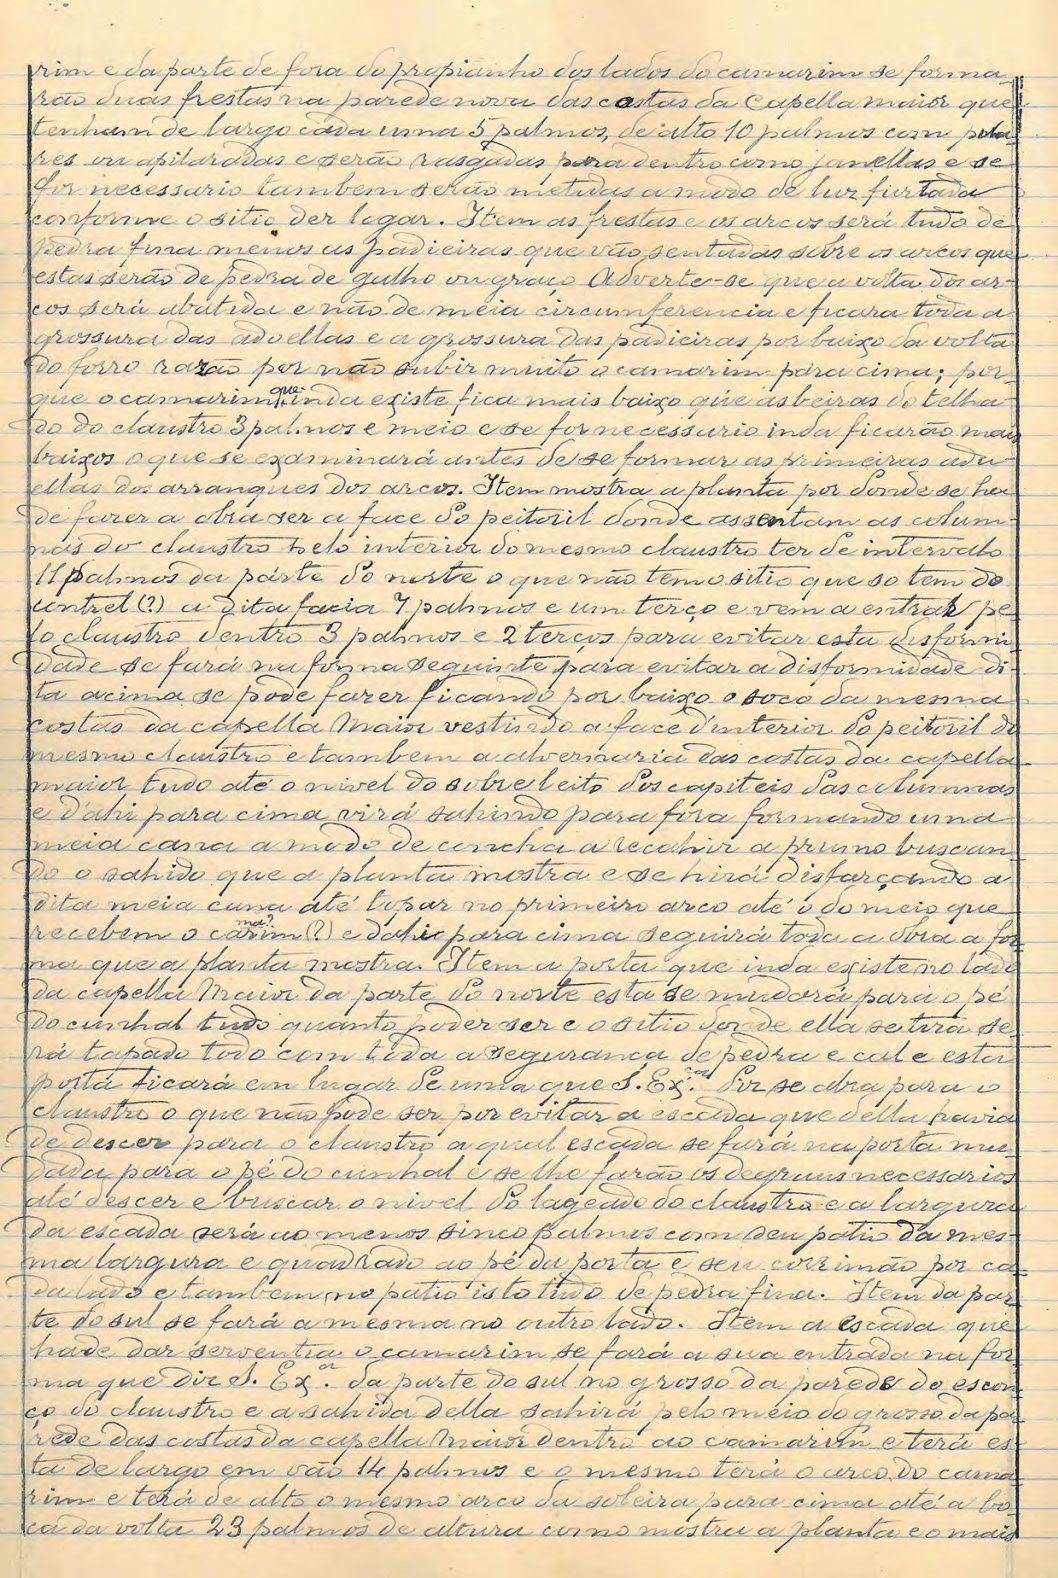 rim e da parte de fora do propianho dos lados do camarim se forma-
rão duas frestas na parede nova das costas da Capella maior que
tenham de largo cada uma 5 palmos, de alto 10 palmos com pila-
res ou apilaradas e serão rasgadas para dentro como janellas e se
for necessario tambem serão metidas a modo de luz furtada
conforme o sitio der logar. Item as frestas e os arcos será tudo de
pedra fina menos as padieiras que vão sentadas sobre os arcos que
estas serão de pedra de galho ou graço Adverte-se que a volta dos ar-
cos será abatida e não de meia circumferencia e ficara toda a
grossura das adoellas e a grossura das padieiras por baixo da volta
do forro razão por não subir muito o camarim para cima; por-
que o camarim que inda existe fica mais baixo que as beiras do telha-
do do claustro 3 palmos e meio e se for necessario inda ficarão mais
baixos o que se examinará antes de se formar as primeiras adu-
ellas dos arranques dos arcos. Item mostra a planta por donde se ha
de fazer a obra ser a face do peitoril donde assentam as colum-
nas do claustro pelo interior do mesmo claustro ter de intervalo
11 palmos da parte do norte o que não tem o sitio que so tem do
(?) a dita facia 7 palmos e um terço e vem a entrar pe-
lo claustro dentro 3 palmos e 2 terços para evitar esta disformi-
dade se fará na forma seguinte para evitar a disformidade di-
ta acima se pode fazer ficando por baixo o soco da mesma
costas da capella Maior vestindo a face d'interior do peitoril do
mesmo claustro e tambem a alvernaria das costas da capella
maior tudo até o nivel do sobreleito dos capiteis das columnas
e d'ahi para cima virá sahindo para fora formando uma
meia cana a modo de concha a recahir a prumo buscan-
do o sahido que a planta mostra e se hirá disfarçando a
dita meia cana até tupar no primeiro arco até o do meio que
recebem o carim ma? (?) e dahi para cima seguirá toda a obra a for-
ma que a planta mostra. Item a porta que inda existe no lado
da capella Maior da parte do norte esta se mudará para o pé
do cunhal tudo quanto poder ser e o sitio donde ella se tira se-
rá tapado todo com toda a segurança de pedra e cal e esta
porta ficará em lugar de uma que S. Exª. diz se abra para o
claustro o que não pode ser por evitar a escada que della havia
de descer para o claustro a qual escada se fará na porta mu-
dada para o pé do cunhal e se lhe farão os degraus necessarios
até descer e buscar o nivel do lageado do claustro e a largura
da escada será ao menos sinco palmos com seu patio da mes-
ma largura e quadrado ao pé da porta e seu corrimão por ca-
da lado e tambem no patio isto tudo de pedra fina. Item da par-
te do sul se fará a mesma no outro lado. Item a escada que
hade dar serventia o camarim se fará a sua entrada na for-
ma que diz S. Exª. da parte do sul no grosso da parede do escon-
ço do claustro e a sahida della sahirá pelo meio do grosso da pa-
rede das costas da capella Maior dentro ao camarim e terá es-
ta de largo em vão 14 palmos e o mesmo terá o arco do cama-
rim e terá de alto o mesmo arco da soleira para cima até a bo-
ca da volta 23 palmos de altura como mostra a planta e o mais